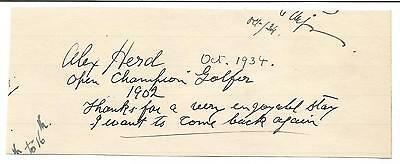 Oct/34
Alex Herd Oct. 1934.
Open Champion Golfer
1902
Thanks for a very enjoyable stay
I want to come back again
to 16th.